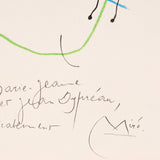 Marie-Jeanne
et Jean Dypréau,
Miró.